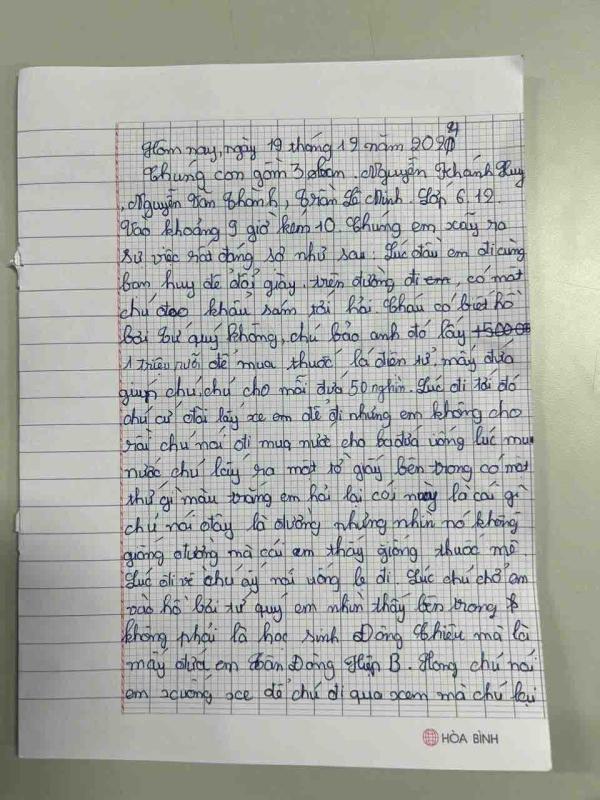 Hôm nay, ngày 19 tháng 12 năm 2024
Chúng con gồm 3 bạn. Nguyễn Khánh Huy
, Nguyễn Văn Thành, Trần Lê Minh. Lớp 6.12.
Vào khoảng 9 giờ kém 10. Chúng em xãy ra
sự việc rất đáng sợ như sau: Lúc đầu em đi cùng
bạn huy để đổi giày. trên đường đi em, có một
chú đeo khẩu sám tới hải. Cháu có biết hồ
bơi tứ quý không, chú bảo anh đó lấy
1 triệu rưỡi để mua thuốc lá điện tử, mấy đứa
giúp chú, chú cho mỗi đứa 50 nghìn. Lúc đi tới đó
chú cứ đòi lấy xe em để đi nhưng em không cho
rồi chú nói đi mua nước cho ba đứa uống lúc mua
nước chú lấy ra một tờ giấy bên trong có một
thứ gì màu trắng em hải lại cái này là cái gì
chú nói đây là đường nhưng nhìn nó không
giống đường mà cái em thấy giống thuốc mê.
Lúc đi về chú ấy nói uống lẹ đi. Lúc chú chở em
vào hồ bơi tứ quý em nhìn thấy bên trong
không phải là học sinh Đông Chiêu mà là
mấy đứa em Tân Đông Hiệp B. Hong chú nói
em xuống xe để chú đi qua xem mà chú lại
HÒA BÌNH